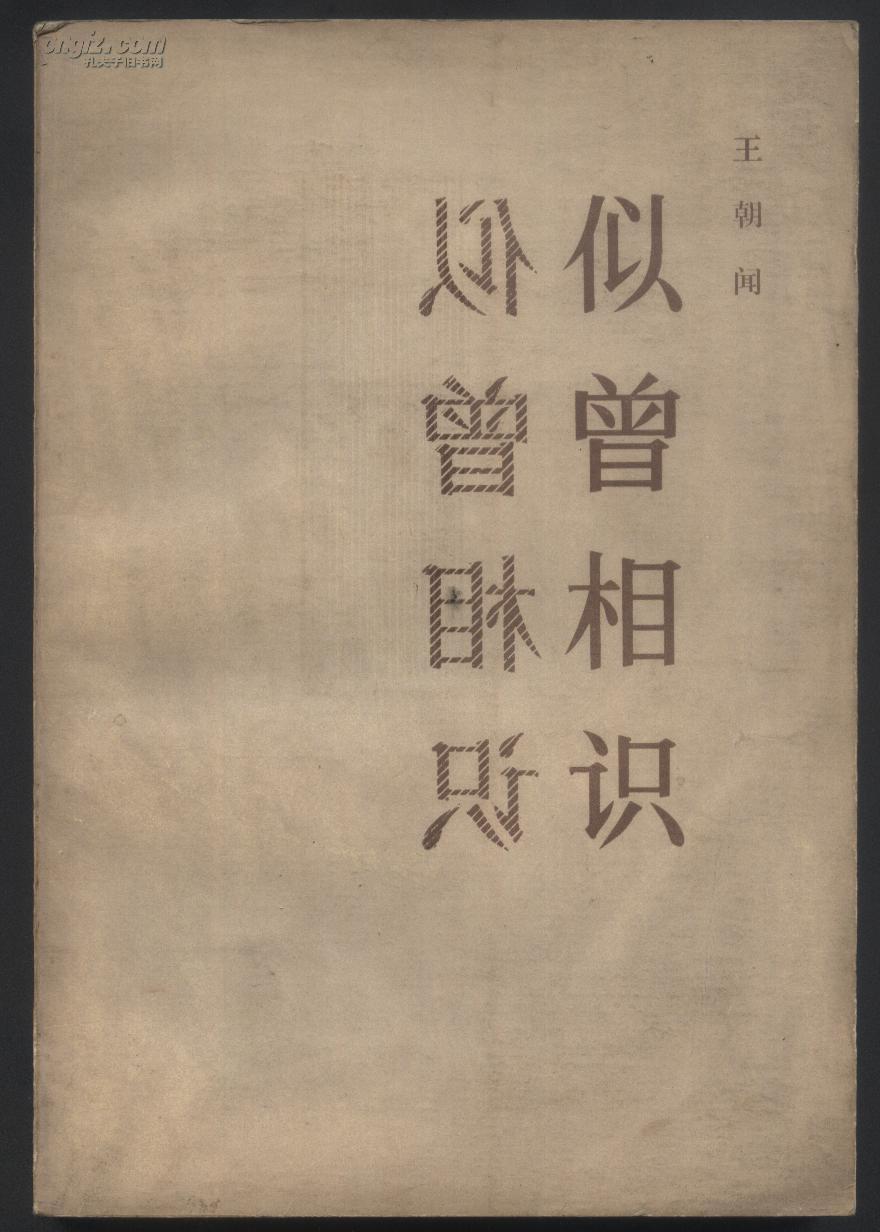 王朝闻
似曾相识
似曾相识
孔夫子旧书网